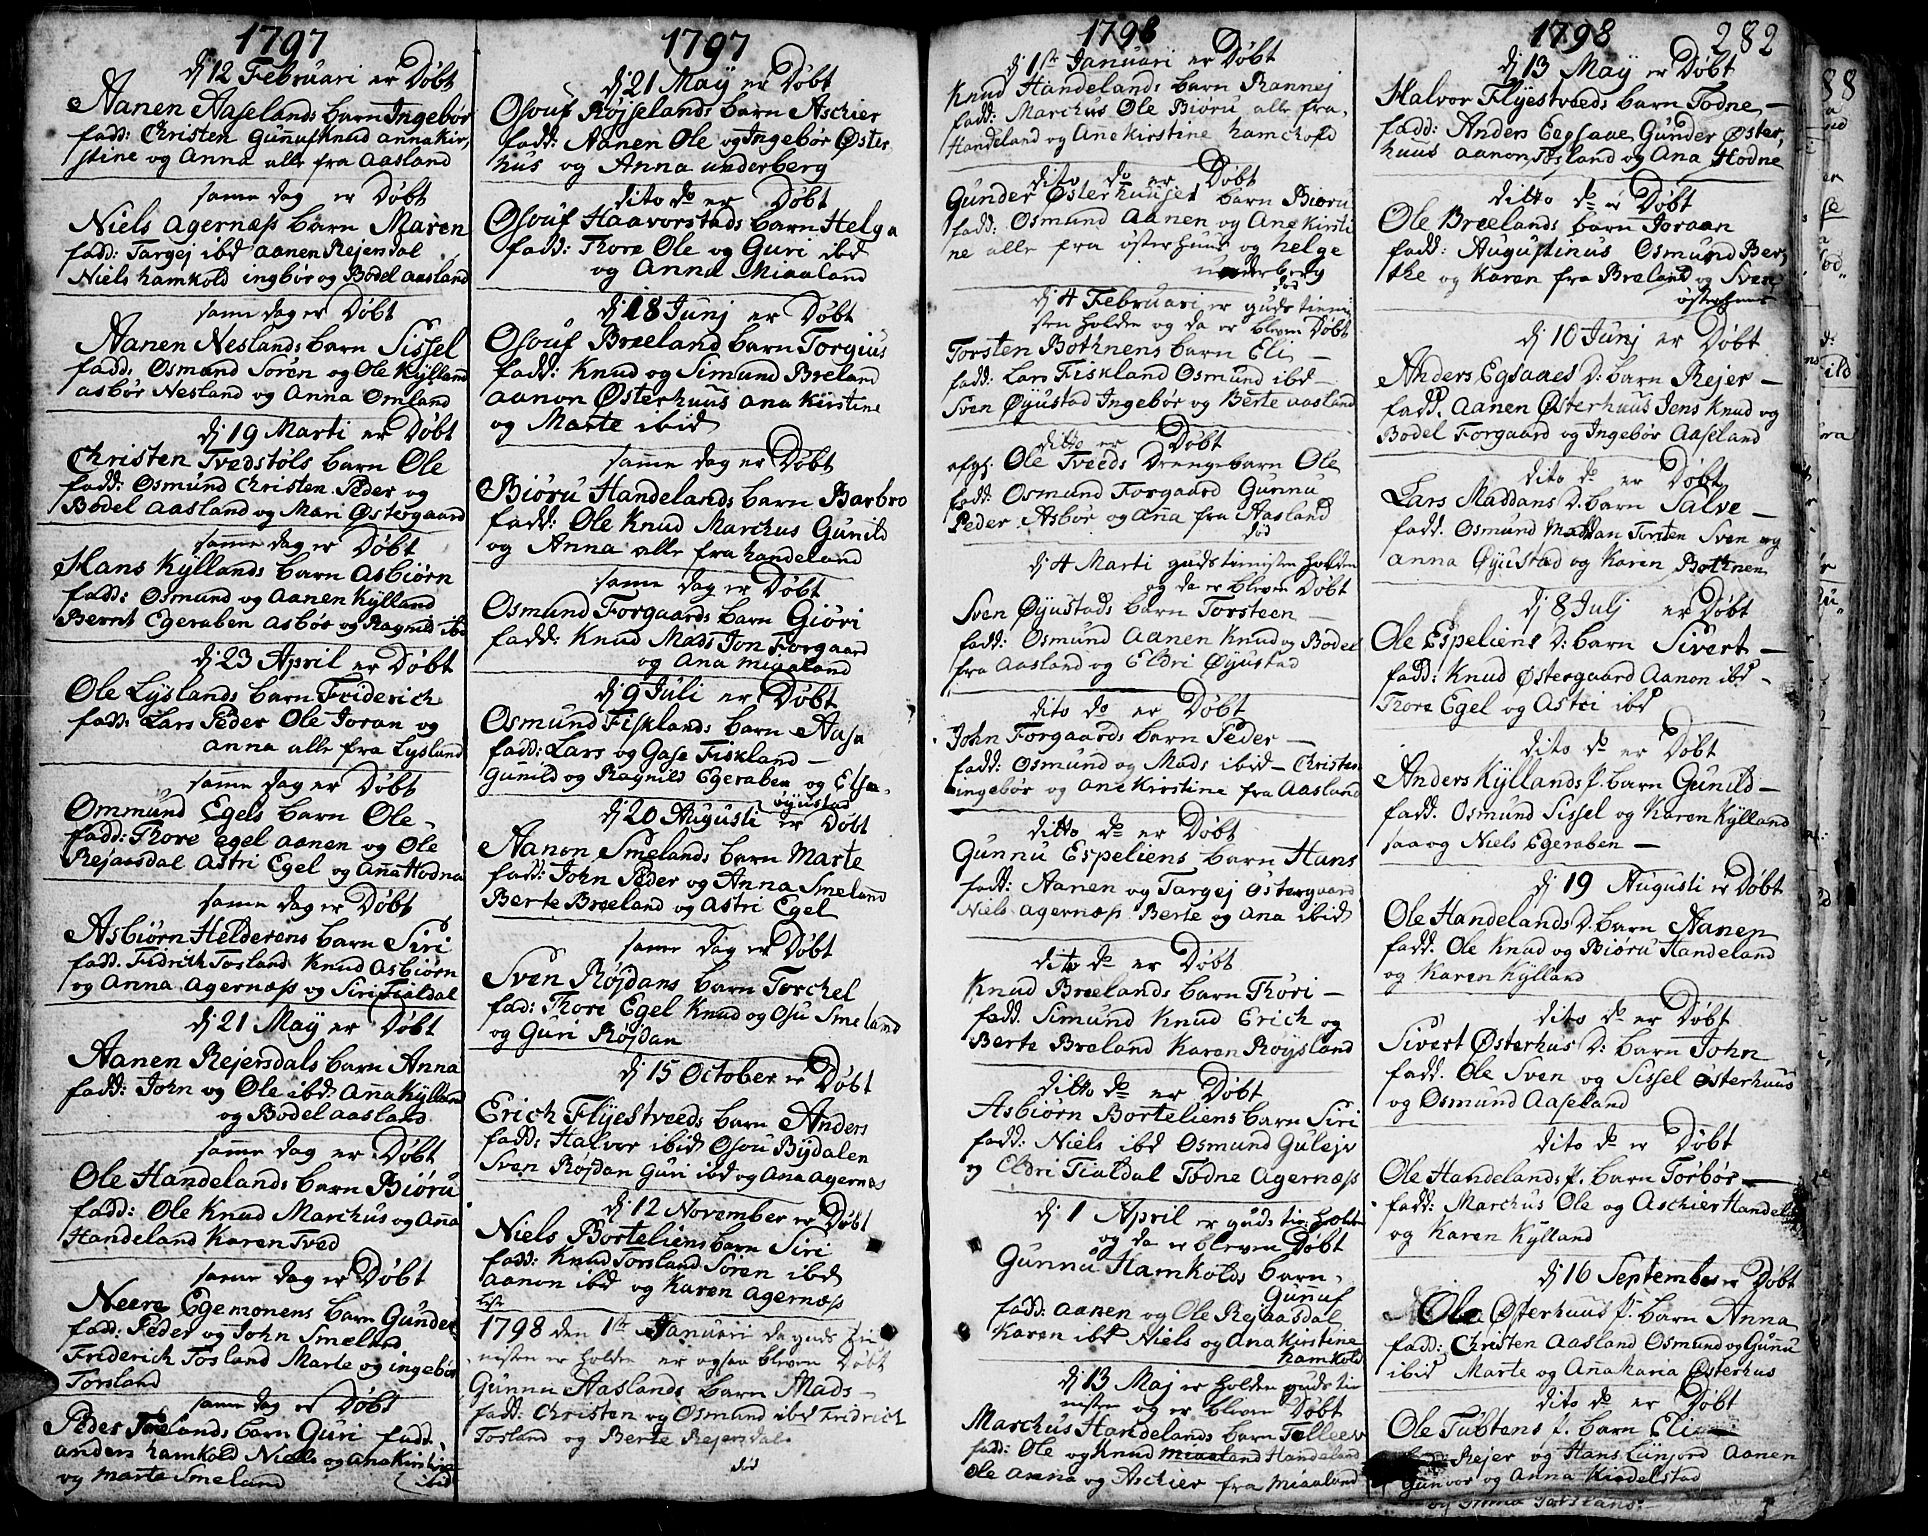 1797
dj 12 Februari er Døbt
Aanen Aaselands barn Ingebør
fadd: Christen Gunnuf Knud anna Kir,
stine og Anna alle fra Aasland
samme dag er Døbt
Niels Agernæss barn Maren
fadd: Targej ibd Aanen Rejersdal
Niels hamkold ingbør og Bodel Aasland
same dag er Døbt
Aanen Neslands barn Sissel
fadd: Osmund Søren og Ole Kylland
asbør Nesland og Anna Omland
dj 19 Marti er Døbt
Christen Tvedstøls barn Ole
fadd: Osmund Christen Peder og
Bodel Aasland og Mari Østergaard
samme dag er Døbt
Hans Kyllands barn Asbiørn
fadd: Osmund og Aanen Kylland
Bernt Egeraben asbør og Ragnild ibd
dj 23 April er Døbt
Ole Lyslands barn Friderich
fadd: Lars Peder Ole Joran og
anna alle fra Lysland
samme dag er Døbt
Ommund Egels barn Ole
fadd: Thore Egel aanen og Ole
Rejersdal Astri Egel og Anna Hodna
samme dag er Døbt
Asbiørn Helderens barn Siri
fadd. Fridrich Tosland Knud Asbiørn
og Anna Agernæss og Siri Tialdal
dj 21 May er Døbt
Aanen Rejersdals barn Anna
fadd: John og Ole ibd: Anna Kylland
og Bodel aasland
samme dag er Døbt
Ole Handelands barn Biøru
fadd: Ole Knud Marchus og Anna
Handeland Karen Tved
samme dag er Døbt
Neere Egemonens barn Gunder
fad: Peder og John Smeland
Friderich Tosland Marte og ingebør
Torsland
samme dag er Døbt
Peder Smelands barn Guri fadd.
anders hamkold Niels og ana Kirstine
og marte Smeland ibid
1797
dj 21 May er Døbt
Osouf Røjselands barn Aschier
fadd: Aanen Ole og Ingebør Øster
hus og Anna underberg
dito do er Døbt
Osouf Haavorstads barn Helga
fadd: Thore Ole og Guri ibd
og Anna Miaaland
dj 18 Junj er Døbt
Osouf Breeland barn Torgius
fadd: Knud og Simund Breland
aanon Østerhuus ana Kirstine
og Marte ibid
samme dag er Døbt
Biøru Handelands barn Barbro
fadd: Ole Knud Marchus Gunild
og Anna alle fra handeland
same dag er Døbt
Osmund Forgaards barn Giøri
fadd: Knud Mads Jon Forgaard
og Ana miaaland
dj 9 Juli er Døbt
Osmund Fisklands barn Aasa
fadd: Lars og Gase Fiskland
Gunild og Ragnild Egeraben og Else
øyustad
dj 20 Augusti er Døbt
Aanon Smelands barn Marte
fadd: John Peder og Anna Smeland
Berte Breeland og Astri Egel
same dag er Døbt
Sven Røjdans barn Torchel
fad: Thore Egel Knud og Osu Smeland
og Guri Røjdan
dj 15 October er Døbt
Erich Flyestveeds barn Anders
fadd: Halvor ibid Osou Bydalen
Sven Røjdan Guri ibd og Ana Agernæs
dj 12 November er Døbt
Niels Borteliens barn Siri
fadd: Knud Torsland Søren ibd
aanon ibd og Karen agernæss
1798 den 1ste Januari da guds ti
nisten er holden er ogsaa bleven Døbt
Gunnu Aaslands barn Mads
fadd: Christen og Osmund ibd Fridrich
Tosland og Berte Rejersdal
død
1798
dj 1ste Januari er Døbt
Knud Handelands barn Rannej
fadd: Marchus Ole Biøru alle fra
Handeland og Ane Kirstine hamchold
dito do er Døbt
Gunder Østerhuuset barn Biøru
fadd: Osmund Aanen og Ane Kirsti
ne alle fra østerhuus og helge
underberg
død
dj 4 Februari er guds tieni
sten holden og da er bleven Døbt
Torsten Bothnens barn Eli
fadd: Lars Fiskland Osmund ibd
Sven Øyustad Ingebør og Berte aasland
ditto er Døbt
afg: Ole Tveeds Drengebarn Ole
fadd Osmund Forgaard Gunnu
Peder Asbør og Anna fra Aasland
død
dj 4 Marti gudstienisten holden
og da er bleven Døbt
Sven Øyustads barn Torsteen
fadd: Osmund Aanen Knud og Bodel
fra Aasland og Eldri Øyustad
dito do er Døbt
John Forgaards barn Peder
fadd: Osmund og Mads ibid Christen
ingebør og Ane Kirstine fra Aasland
ditto do er Døbt
Gunnu Espeliens barn Hans
fadd: Aanen og Targej Østergaard
Niels Agernæss Berte og Ana ibid
dito do er Døbt
Knud Breelands barn Thori
fadd. Simund Knud Erich og
Berte Breland Karen Røysland
ditto do er Døbt
Asbiørn Borteliens barn Siri
fadd: Niels ibd Osmund Gulejv
og Eldri Tialdal Todne Agernæss
dj 1 April er guds tie: holden
og da er bleven Døbt
Gunnu Hamkolds barn
Gunuf
fadd: aanen og Ole Rejaasdal
Karen ibd Niels og Ana Kirstine
hamkold
dj 13 Maj er holden guds tie
nisten og er bleven Døbt
Marchus Handelands barn Tolleev
fadd: Ole og Knud miaaland Handeland
Ole anna og Aschier fra miaaland
1798
282
dj 13 May er Døbt
Halvor Flyestveeds barn Todne
fadd: Anders Eegsaae Gunder Øster,
huus aanon Tosland og Ana Hodne
ditto do er Døbt
Ole Breelands barn Joraan
fadd: Augustinus Osmund Ber
the og Karen fra Breland og Sven
østerhuus
dj 10 Junj er Døbt
Anders Egsaaes D: barn Rejer
fadd. Aanen Østerhuus Jens Knud og
Bodel Forgaard og Ingebør Aaseland
dito do er Døbt
Lars Maddans D. barn Salve
fadd. Osmund Maddan Torsten Sven og
anna Øyustad og Karen Bothnen
dj 8 Julj er Døbt
Ole Espeliens D: barn Sivert
fadd: Knud Østergaard Aanon ibd
Thore Egel og Astri ibd
dito do er Døbt
Anders Kyllands P. barn Gunild
fadd. Osmund Sissel og Karen Kylland
saa og Niels Egeraben
dj 19 Augusti er Døbt
Ole Handelands D. barn Aanen
fadd. Ole Knud og Biøru Handeland
og Karen Kylland
dito do er Døbt
Sivert Østerhus D: barn John
fadd. Ole Sven og Sissel Østerhuus
og Osmund Aaseland
dito do er Døbt
Ole Handelands P. barn Torbør
fadd: Marchus Ole og Aschier Handeland
og Karen Kylland
dj 16 September er Døbt
Ole Østerhuus P. barn Anna
fadd: Christen Aasland Osmund og Gunnu
ibid Marte og Ana Maria Østerhus
dito do er Døbt
Ole Tubtens P. barn Eli
Rejer og Hans Liinjord Aanen
Gunvor og Anna Kindelstad
og Anna Torsland